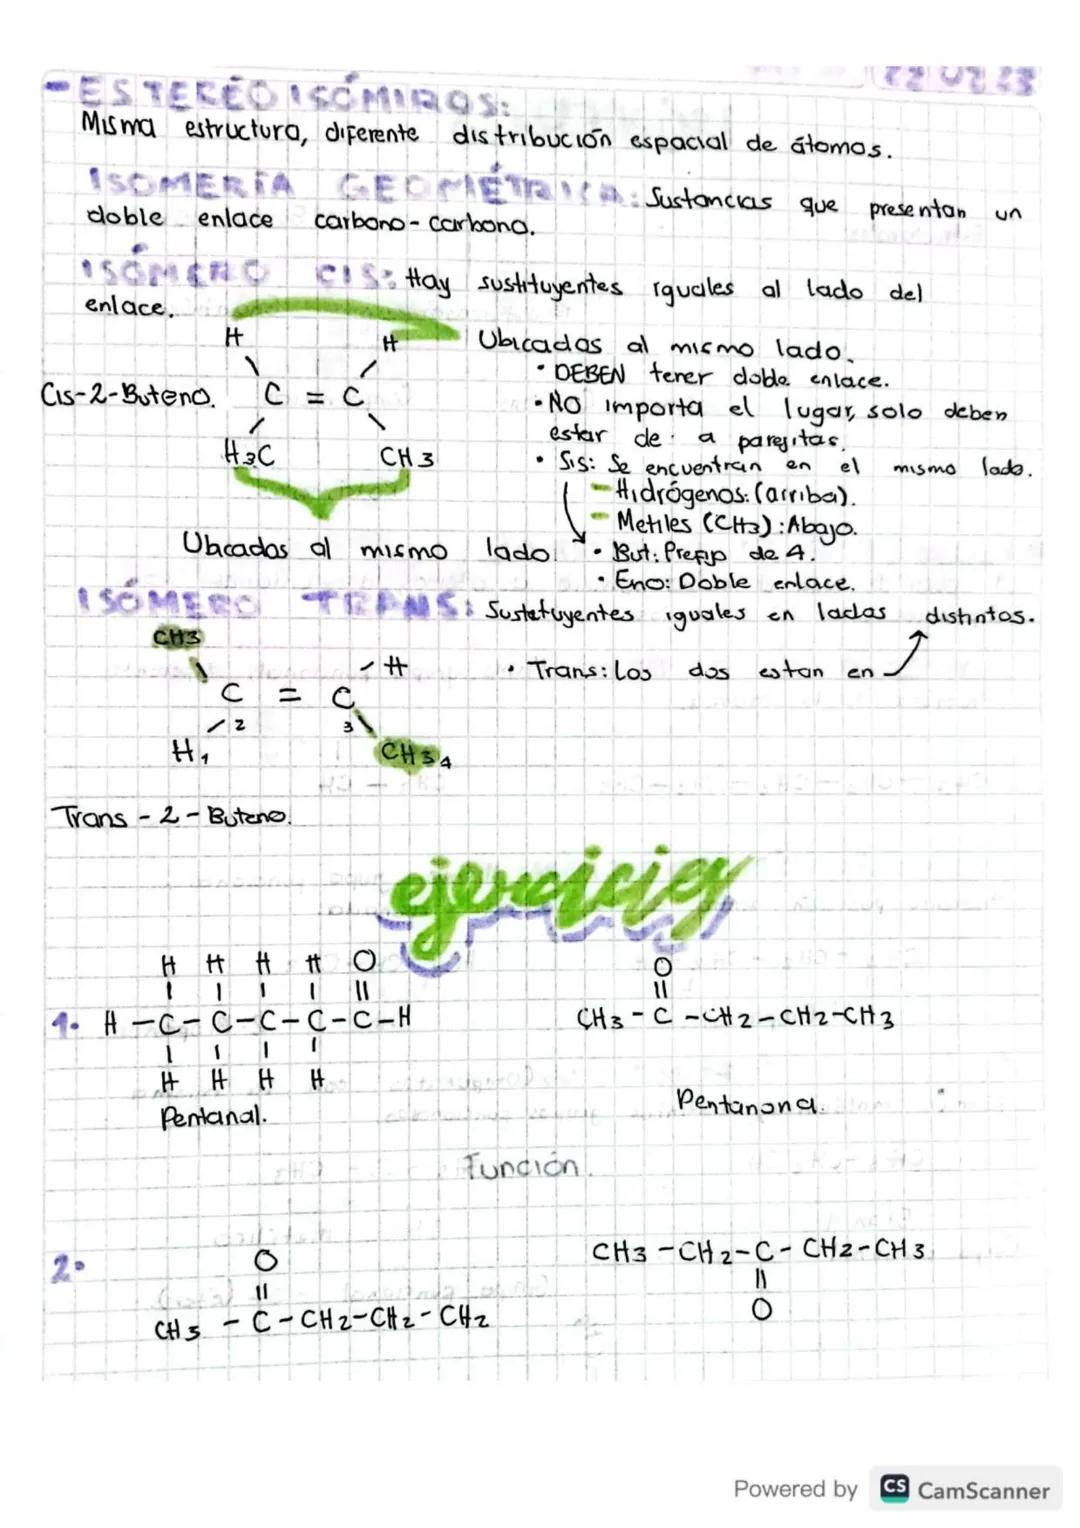 22 02 23
-ESTEREOISÓMIROS:
Misma estructura, diferente distribución espacial de átomos.
ISOMERÍA GEOMÉTRICA: Sustancias que presentan un
doble enlace carbono-carbono.
ISÓMERO CIS: Hay sustituyentes iguales al lado del
enlace.
H H
Ubicados al mismo lado.
• DEBEN tener doble enlace.
Cis-2-Buteno. C = C
• NO importa el lugar, solo deben
estar de a parejitas.
H3C CH3
• Sis: Se encuentran en el mismo lado.
- Hidrógenos: (arriba).
- Metiles (CH3): Abajo.
Ubcados al mismo lado.
• But: Prefijo de 4.
• Eno: Doble enlace.
ISÓMERO TRANS: Sustetuyentes iguales en lados distintos.
CH3 H
• Trans: Los dos estan en
C = C
2 3
H1 CH3 4
Trans-2-Buteno.
ejercicios
H H H H O
1. H-C-C-C-C-C-H
H H H H
Pentanal.
O
CH3-C-CH2-CH2-CH3
Pentanona.
Función.
2. O
CH3-C-CH2-CH2-CH2
CH3-CH2-C-CH2-CH3
O
Powered by CS CamScanner